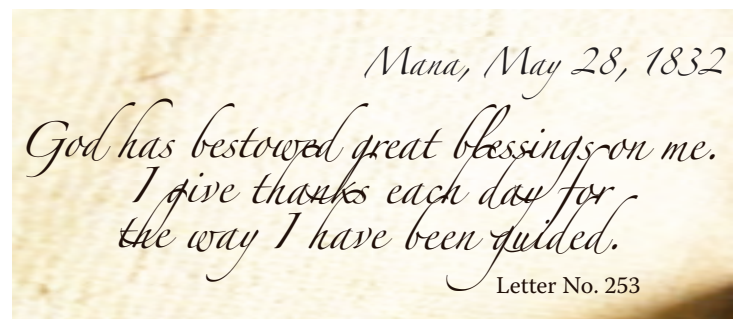 Mana, May 28, 1832
God has bestowed great blessings on me.
I give thanks each day for
the way I have been guided.
Letter No. 253